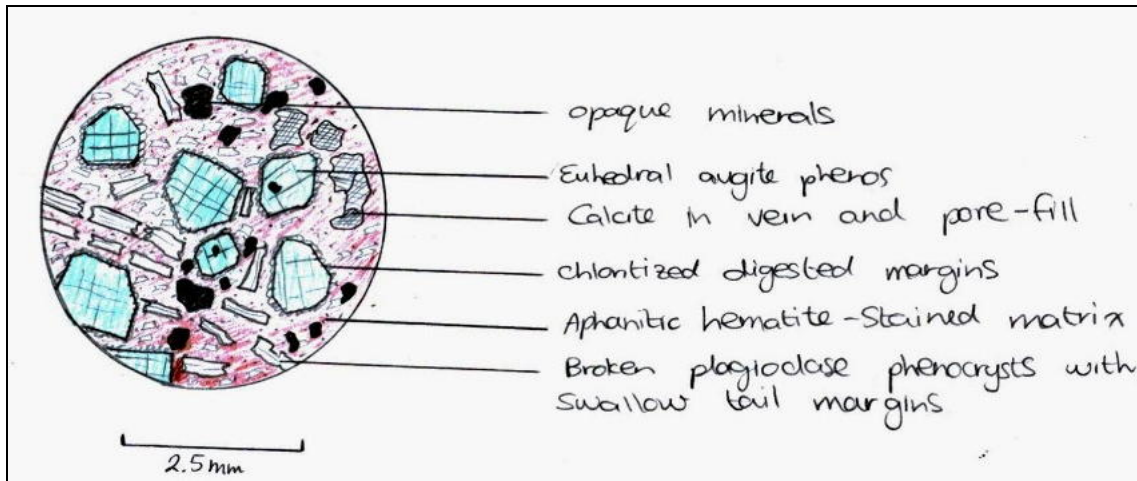 opaque minerals
Euhedral augite phenos
Calcite in vein and pore-fill
chloritized digested margins
Aphanitic hematite-Stained matrix
Broken plagioclase phenocrysts with
swallow tail margins
2.5mm